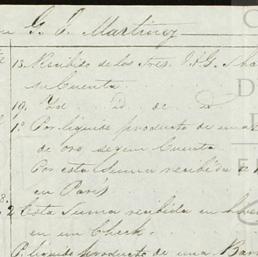 G. E. Martinez
15. Recibido de los Sres. I. & G.
su Cuenta
19. Id id de
1º Por líquido producto de una
de oro segun Cuenta
Por esta suma recibida
en Paris
2 Esta Suma recibida en
en un Check.
P. líquido producto de una Bar